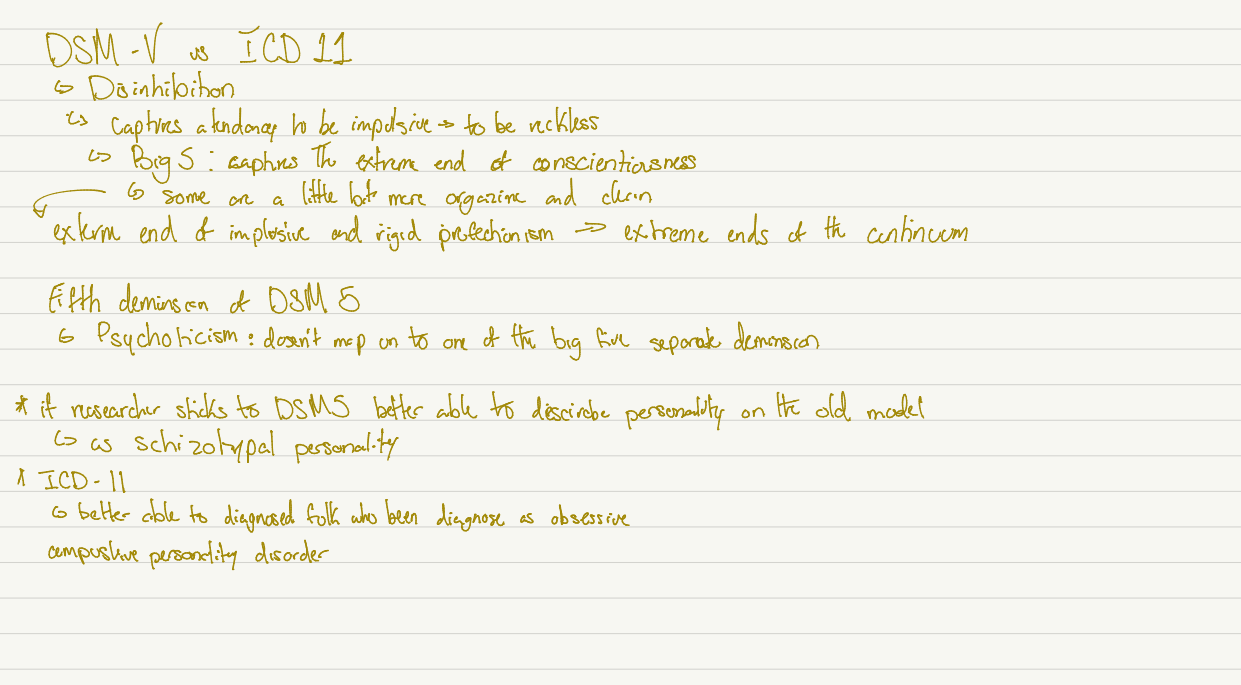 DSM-V vs ICD 11
↳ Disinhibition
↳ captures a tendancy to be impulsive → to be reckless
↳ Big 5 : captures the extreme end of conscientiousness
↳ some are a little bit more organize and clean
extreme end of implusive and rigid prefectionism → extreme ends of the continuum
Fifth demension of DSM 5
↳ Psychoticism : doesn't map on to one of the big five separate demension
* if researcher sticks to DSM5 better able to discirbe personality on the old model
↳ as schizotypal personality
* ICD-11
↳ better able to diagnosed folk who been diagnose as obsessive
compuslive personality disorder